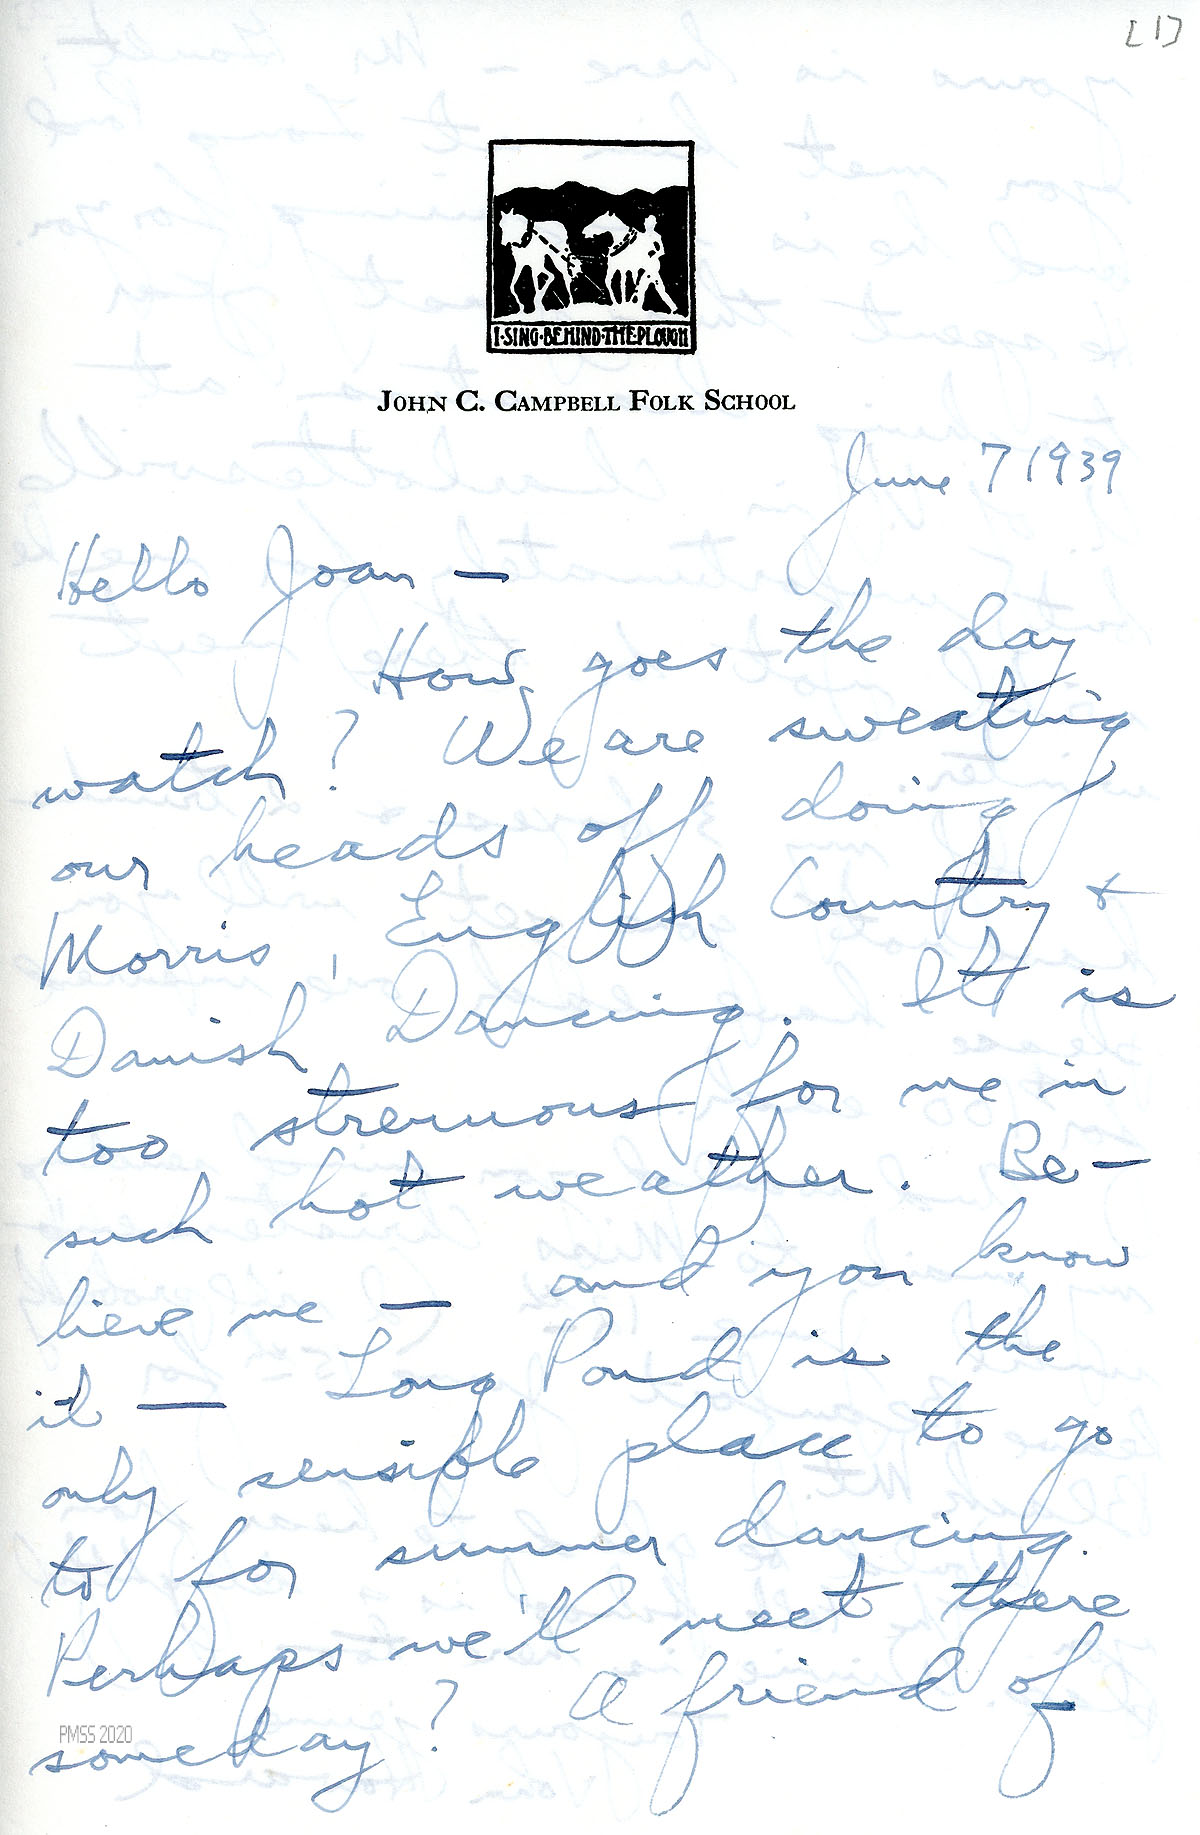 [1]
I·SING·BEHIND·THE·PLOUGH
JOHN C. CAMPBELL FOLK SCHOOL
June 7 1939
Hello Joan —
How goes the day
watch? We are sweating
our heads off doing
Morris, English Country +
Danish Dancing. It is
too strenuous for me in
such hot weather. Be-
lieve me — and you know
it — Long Pond is the
only sensible place to go
to for summer dancing.
Perhaps we'll meet there
someday? A friend of
PMSS 2020